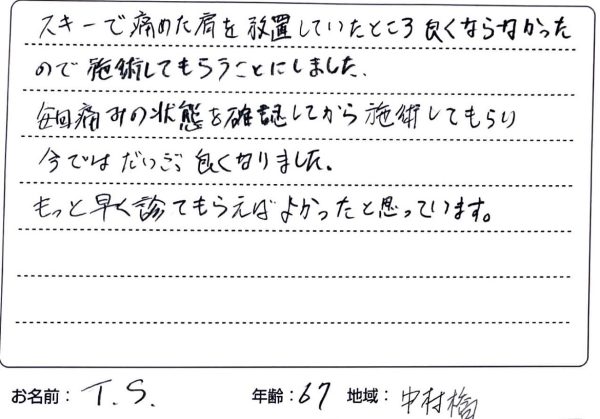 スキーで痛めた肩を放置していたところ良くならなかった
ので施術してもらうことにしました。
毎回痛みの状態を確認してから施術してもらい
今ではだいぶ良くなりました。
もっと早く診てもらえばよかったと思っています。
お名前: T.S. 年齢: 67 地域: 中村橋